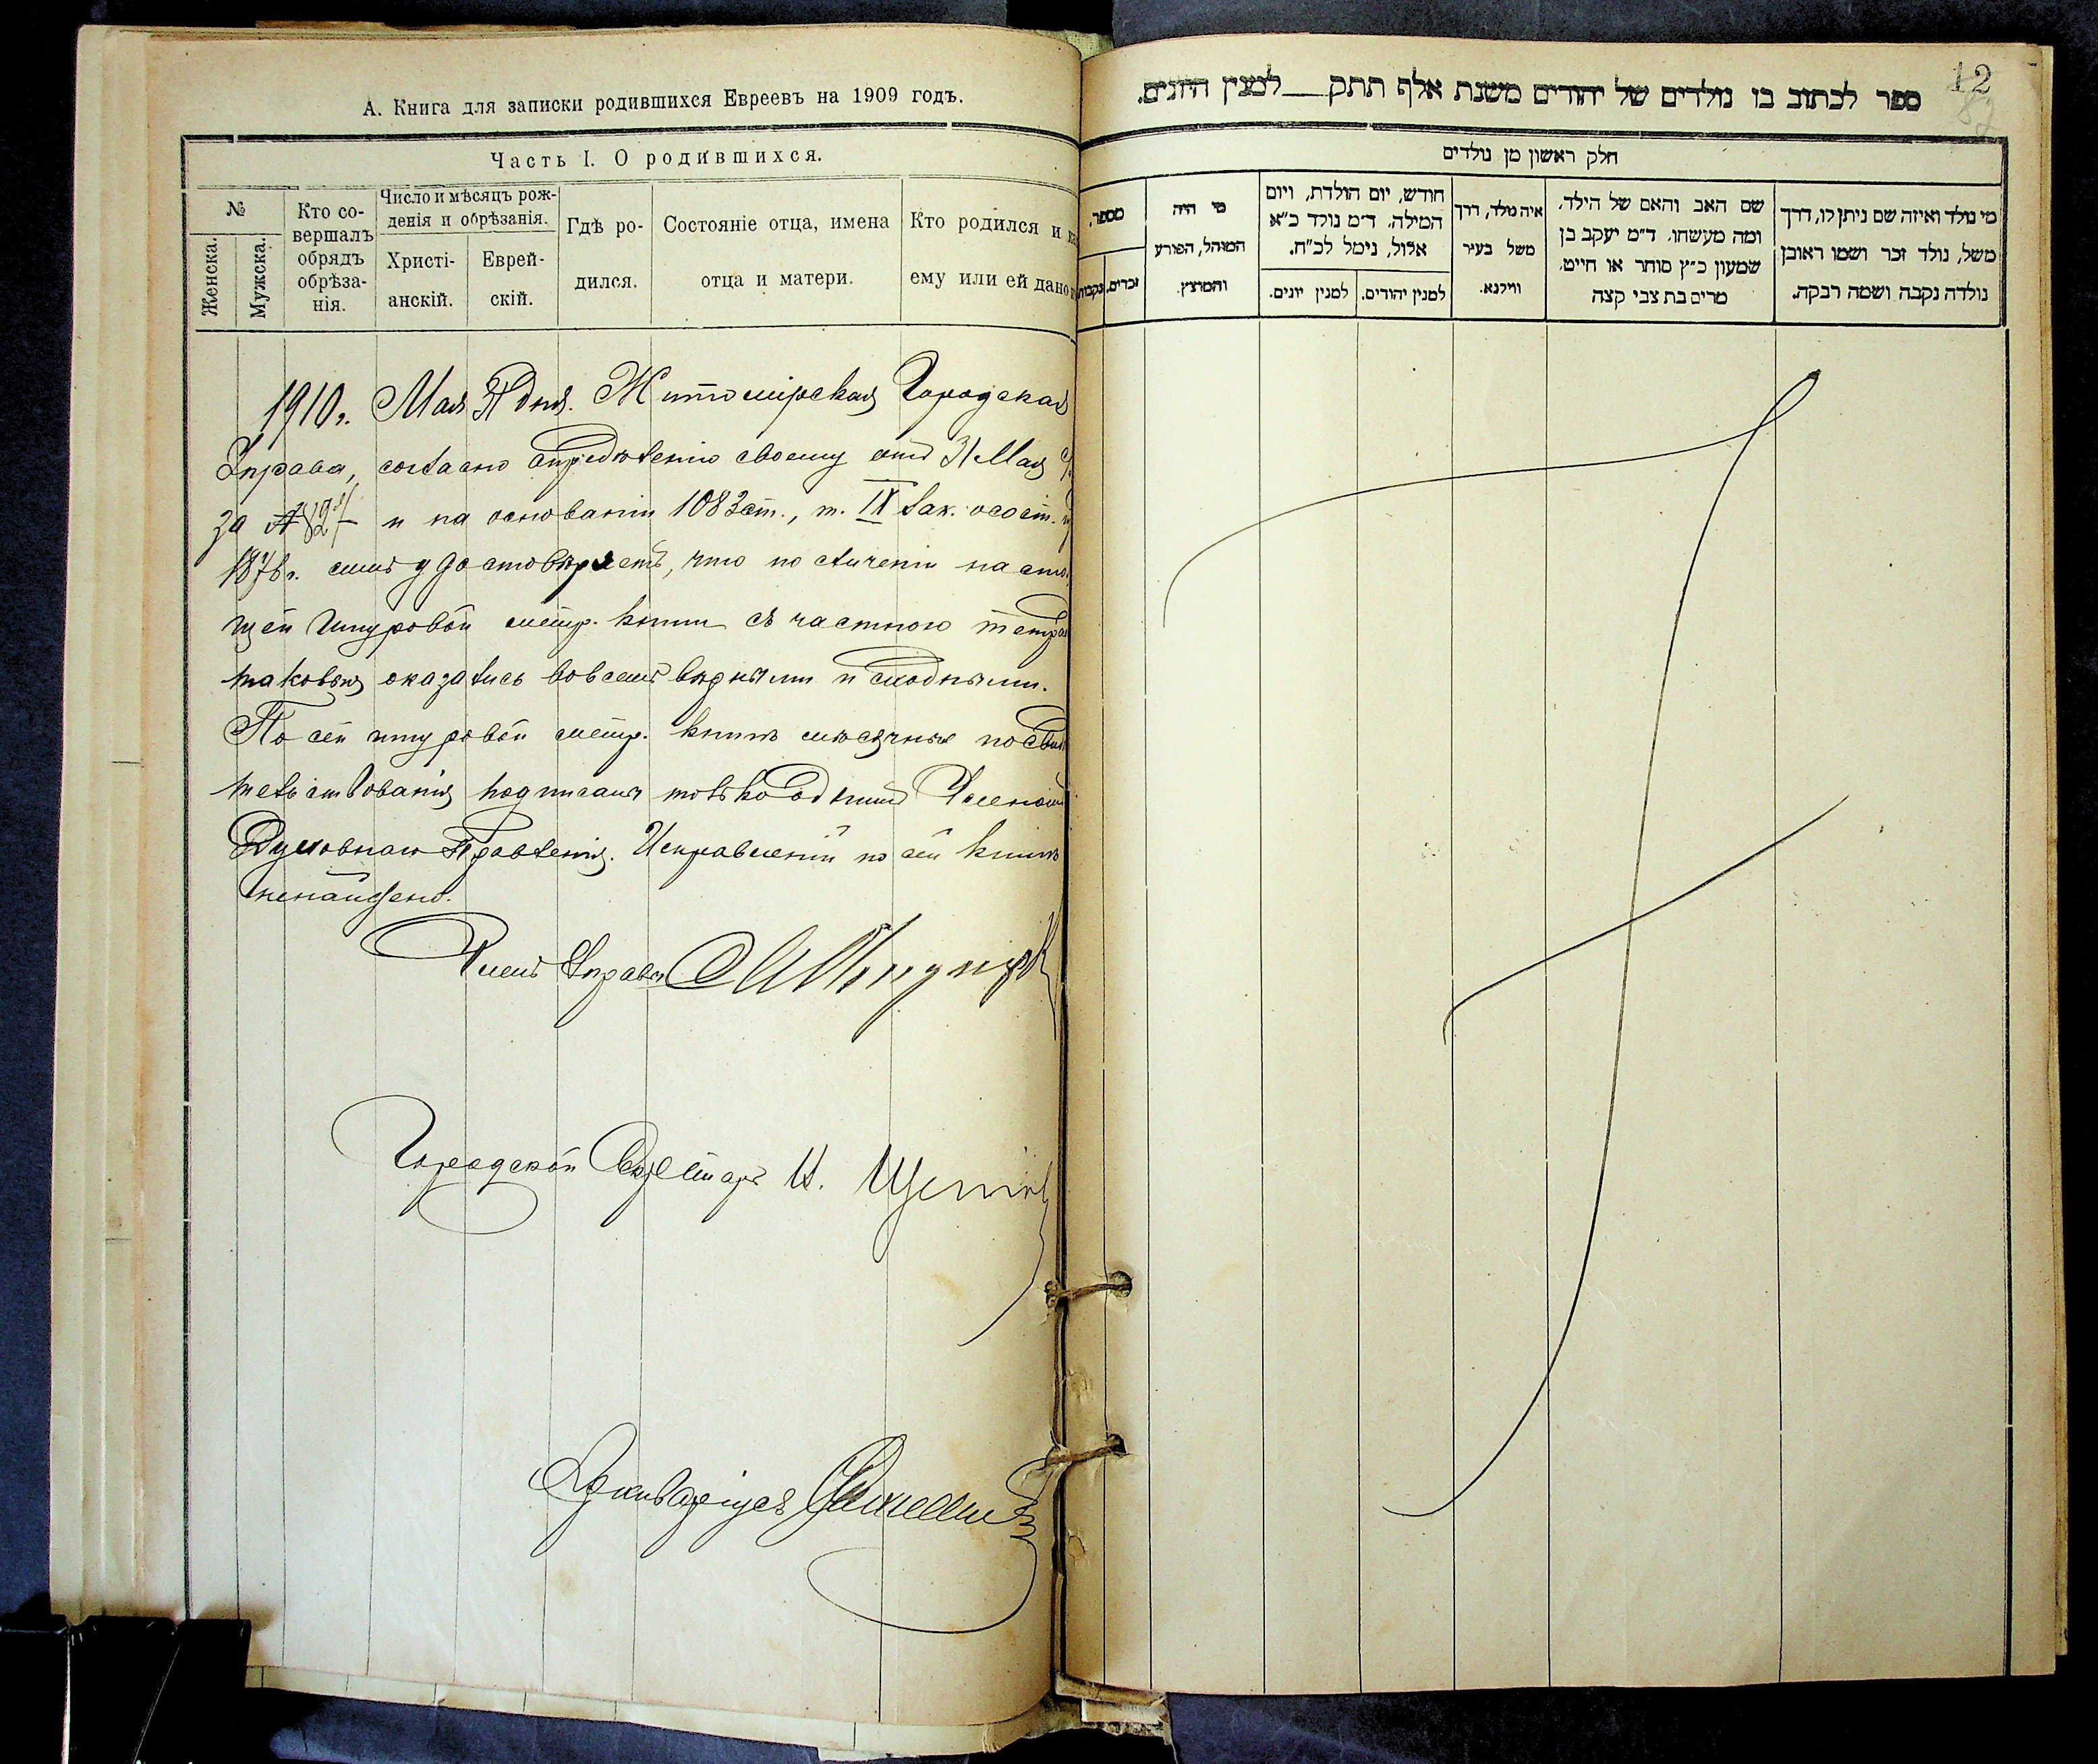 А. Книга для записки родившихся Евреевъ на 1909 годъ.
Часть I. О родившихся.
№
Женска.
Мужска.
Кто со-
вершалъ
обрядъ
обрѣза-
нія.
Число и мѣсяцъ рож-
денія и обрѣзанія.
Христі-
анскій.
Еврей-
скій.
Гдѣ ро-
дился.
Состояніе отца, имена
отца и матери.
Кто родился и
ему или ей дано
1910 г. Мая 31 дня. Житомірская Городская
Управа, согласно опредѣленію своему отъ 31 Мая
за № и на основаніи 1082 ст., т. IX Зак. о сост.
1876 г. симъ удостовѣряетъ, что по сличеніи настоя
щей шнуровой метр. книги съ частною тетрад
таковыя оказались во всемъ вѣрными и сходными.
По сей шнуровой метр. книгѣ мѣсячныя посвидѣ
тельствованія подписаны только однимъ Членомъ
Духовнаго Правленія. Исправленій по сей книгѣ
ненайдено.
Членъ Управы
Городской Секретарь И.
Архиваріусъ
12
ספר לכתוב בו נולדים של יהודים משנת אלף תתק__למנין היונים.
חלק ראשון מן נולדים
מספר.
זכרים.
נקבות
מי היה
המוהל, הפורע
והמוצץ.
חודש, יום הולדת, ויום
המילה. ד״מ נולד כ״א
אלול, נימל לכ״ח.
למנין יונים.
למנין יהודים.
איה נולד, דרך
משל בעיר
ווילנא.
שם האב והאם של הילד,
ומה מעשהו. ד״מ יעקב בן
שמעון כ״ץ סוחר או חייט.
מרים בת צבי קצה
מי נולד ואיזה שם ניתן לו, דרך
משל, נולד זכר ושמו ראובן
נולדה נקבה ושמה רבקה.